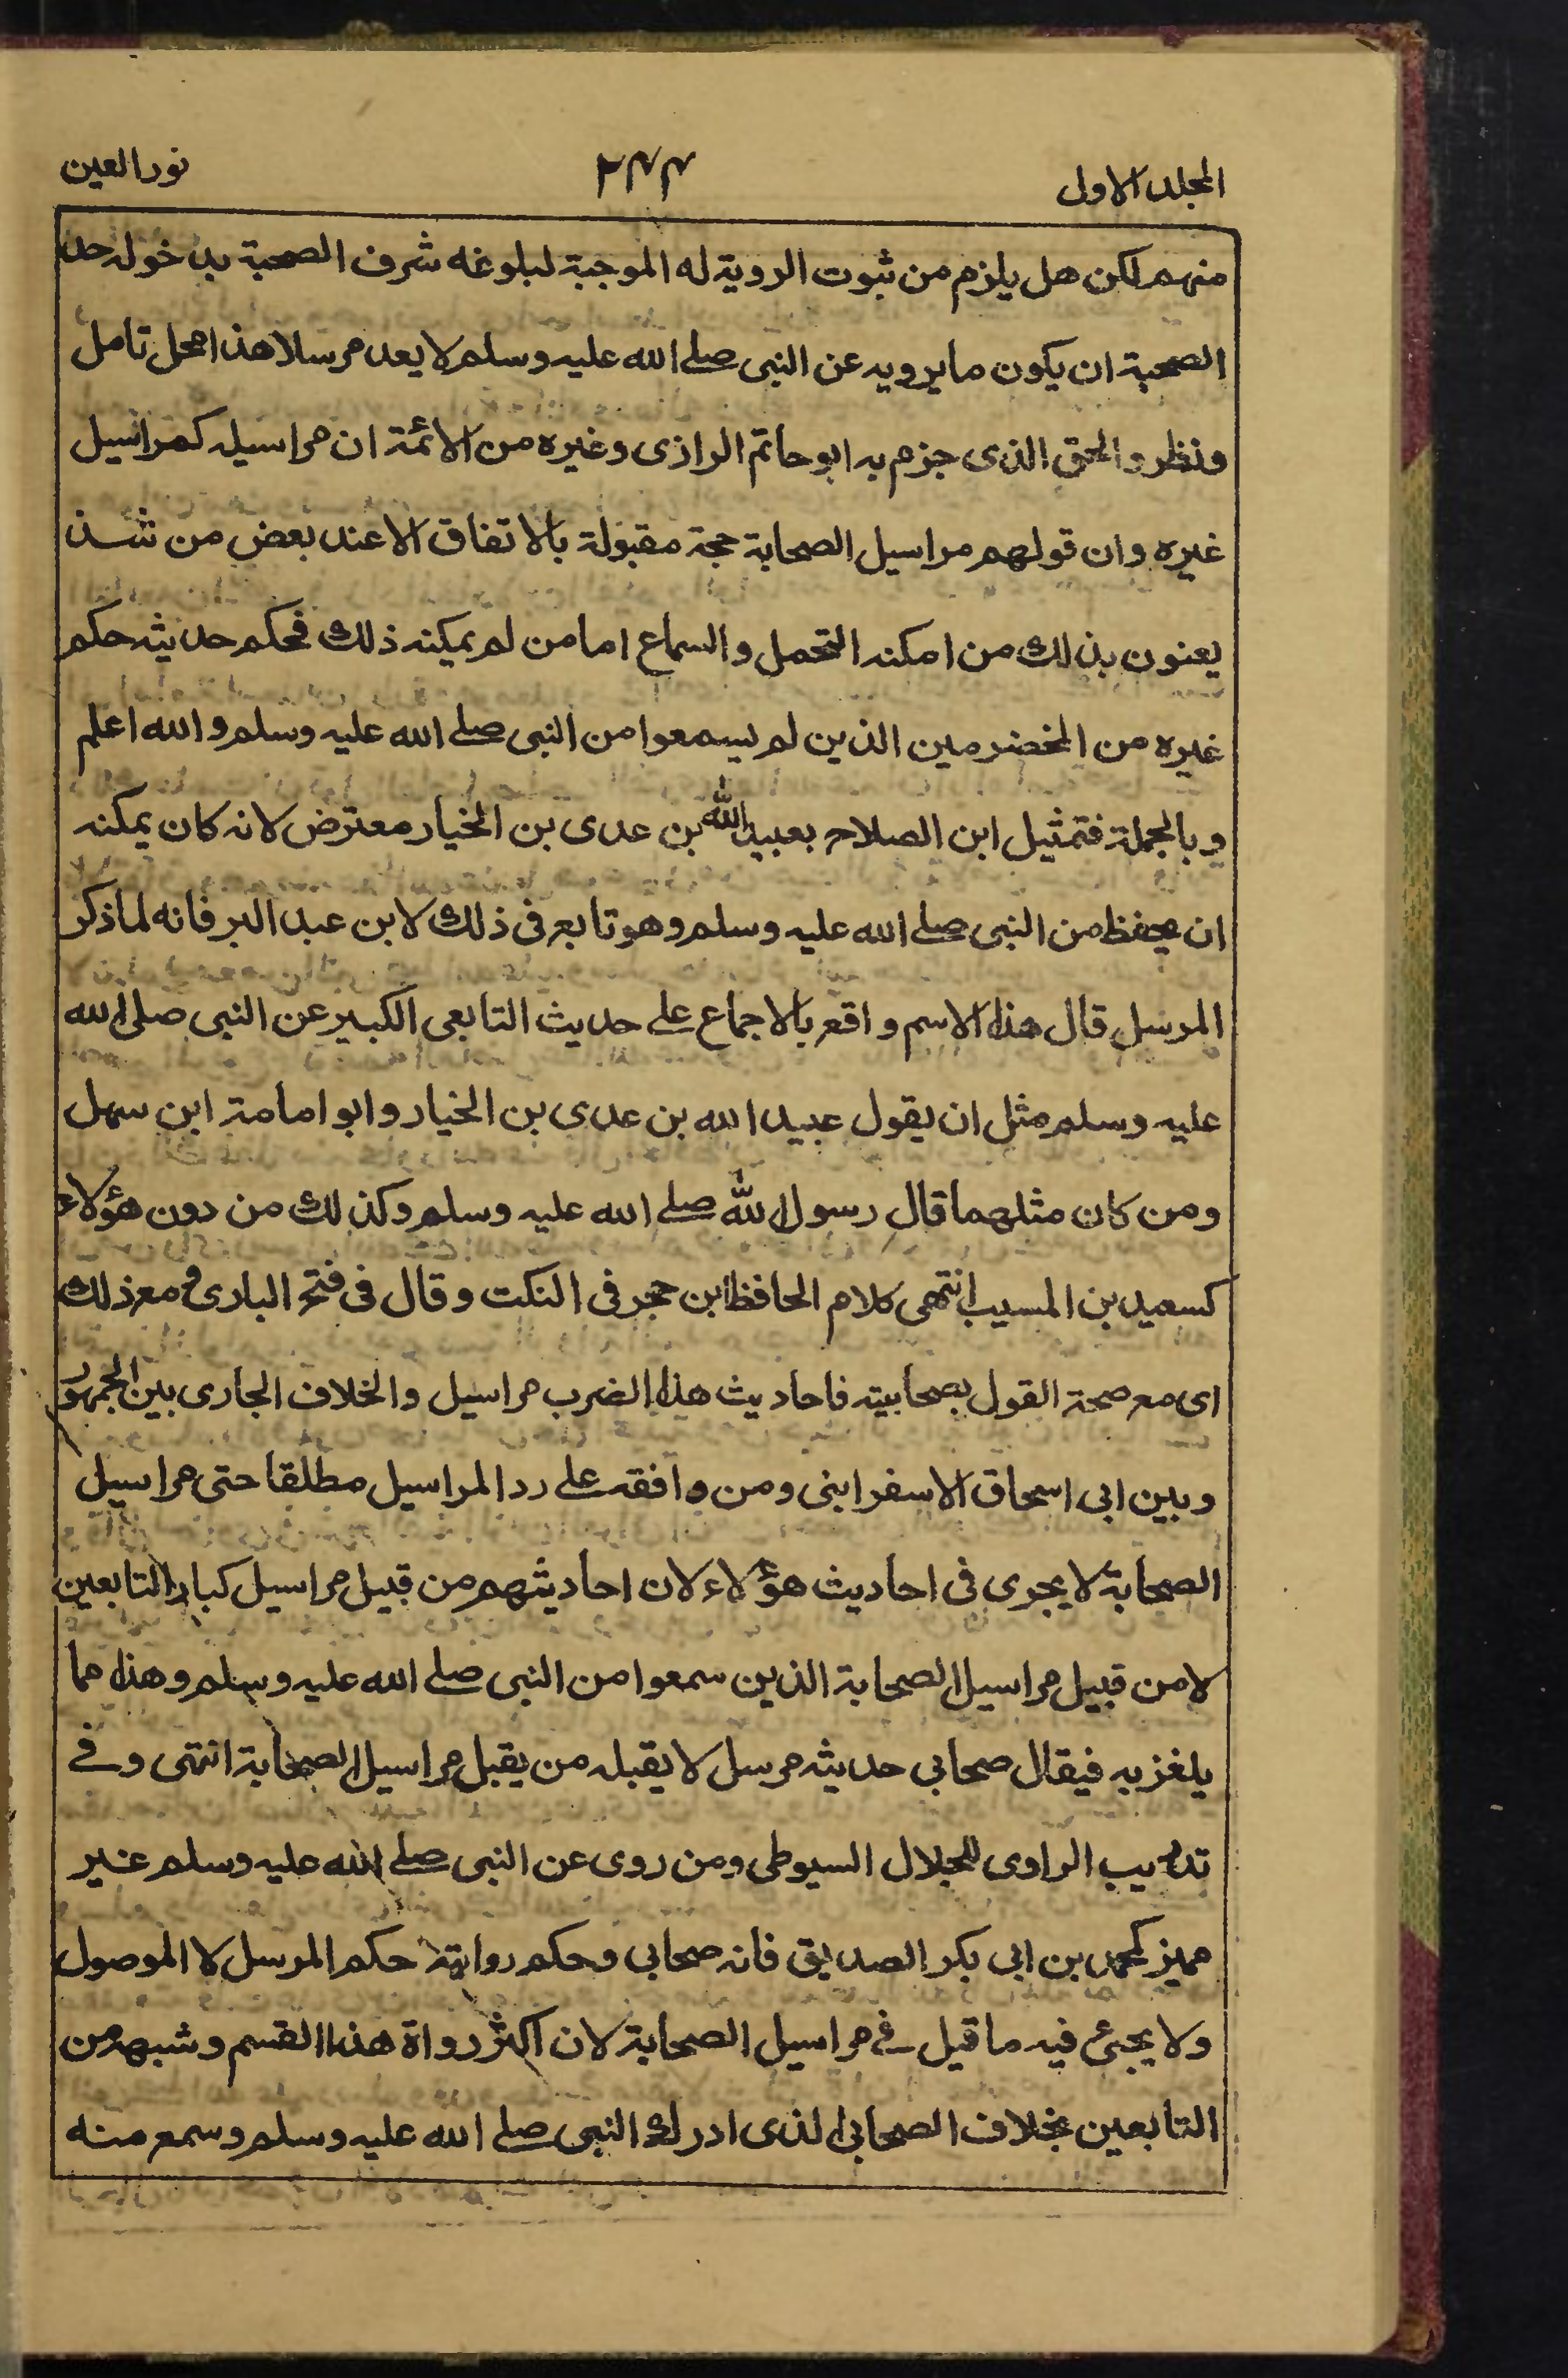 المجلد الاول
٢٤٤
نور العين
منهم لكن هل يلزم من ثبوت الروية له الموجبة لبلوغه شرف الصحبة بدخوله حد
الصحبة ان يكون ما يرويه عن النبى صلے الله عليه وسلم لا يعد مرسلا هذا محل تامل
ونظر والحق الذى جزم به ابو حاتم الرازى وغيره من الائمة ان مراسيله كمراسيل
غيره وان قولهم مراسيل الصحابة حجة مقبولة بالاتفاق الا عند بعض من شذ
يعنون بذلك من امكنه التحمل والسماع اما من لم يمكنه ذلك فحكم حديثه حكم
غيره من المخضرمين الذين لم يسمعوا من النبى صلے الله عليه وسلم والله اعلم
وبالجملة فتمثيل ابن الصلاح بعبيد الله بن عدى بن الخيار معترض لانه كان يمكنه
ان يحفظ من النبى صلے الله عليه وسلم وهو تابع فى ذلك لابن عبد البر فانه لما ذكر
المرسل قال هذا الاسم واقع بالاجماع على حديث التابعى الكبير عن النبى صلى الله
عليه وسلم مثل ان يقول عبيد الله بن عدى بن الخيار وابو امامة ابن سهل
ومن كان مثلهما قال رسول الله صلے الله عليه وسلم وكذلك من دون هؤلاء
كسعيد بن المسيب انتهى كلام الحافظ ابن حجر فى النكت وقال فى فتح البارى ومع ذلك
اى مع صحة القول بصحابيته فاحاديث هذا الضرب مراسيل والخلاف الجارى بين الجمهور
وبين ابى اسحاق الاسفراينى ومن وافقه على رد المراسيل مطلقا حتى مراسيل
الصحابة لا يجرى فى احاديث هؤلاء لان احاديثهم من قبيل مراسيل كبار التابعين
لا من قبيل مراسيل الصحابة الذين سمعوا من النبى صلے الله عليه وسلم وهذا مما
يلغز به فيقال صحابي حديثه مرسل لا يقبله من يقبل مراسيل الصحابة انتهى وفے
تدريب الراوى للجلال السيوطى ومن روى عن النبى صلے الله عليه وسلم غير
مميز كمحمد بن ابى بكر الصديق فانه صحابي وحكم روايته حكم المرسل لا الموصول
ولا يجئ فيه ما قيل فے مراسيل الصحابة لان اكثر رواة هذا القسم وشبهه من
التابعين بخلاف الصحابى الذى ادرك النبى صلے الله عليه وسلم وسمع منه